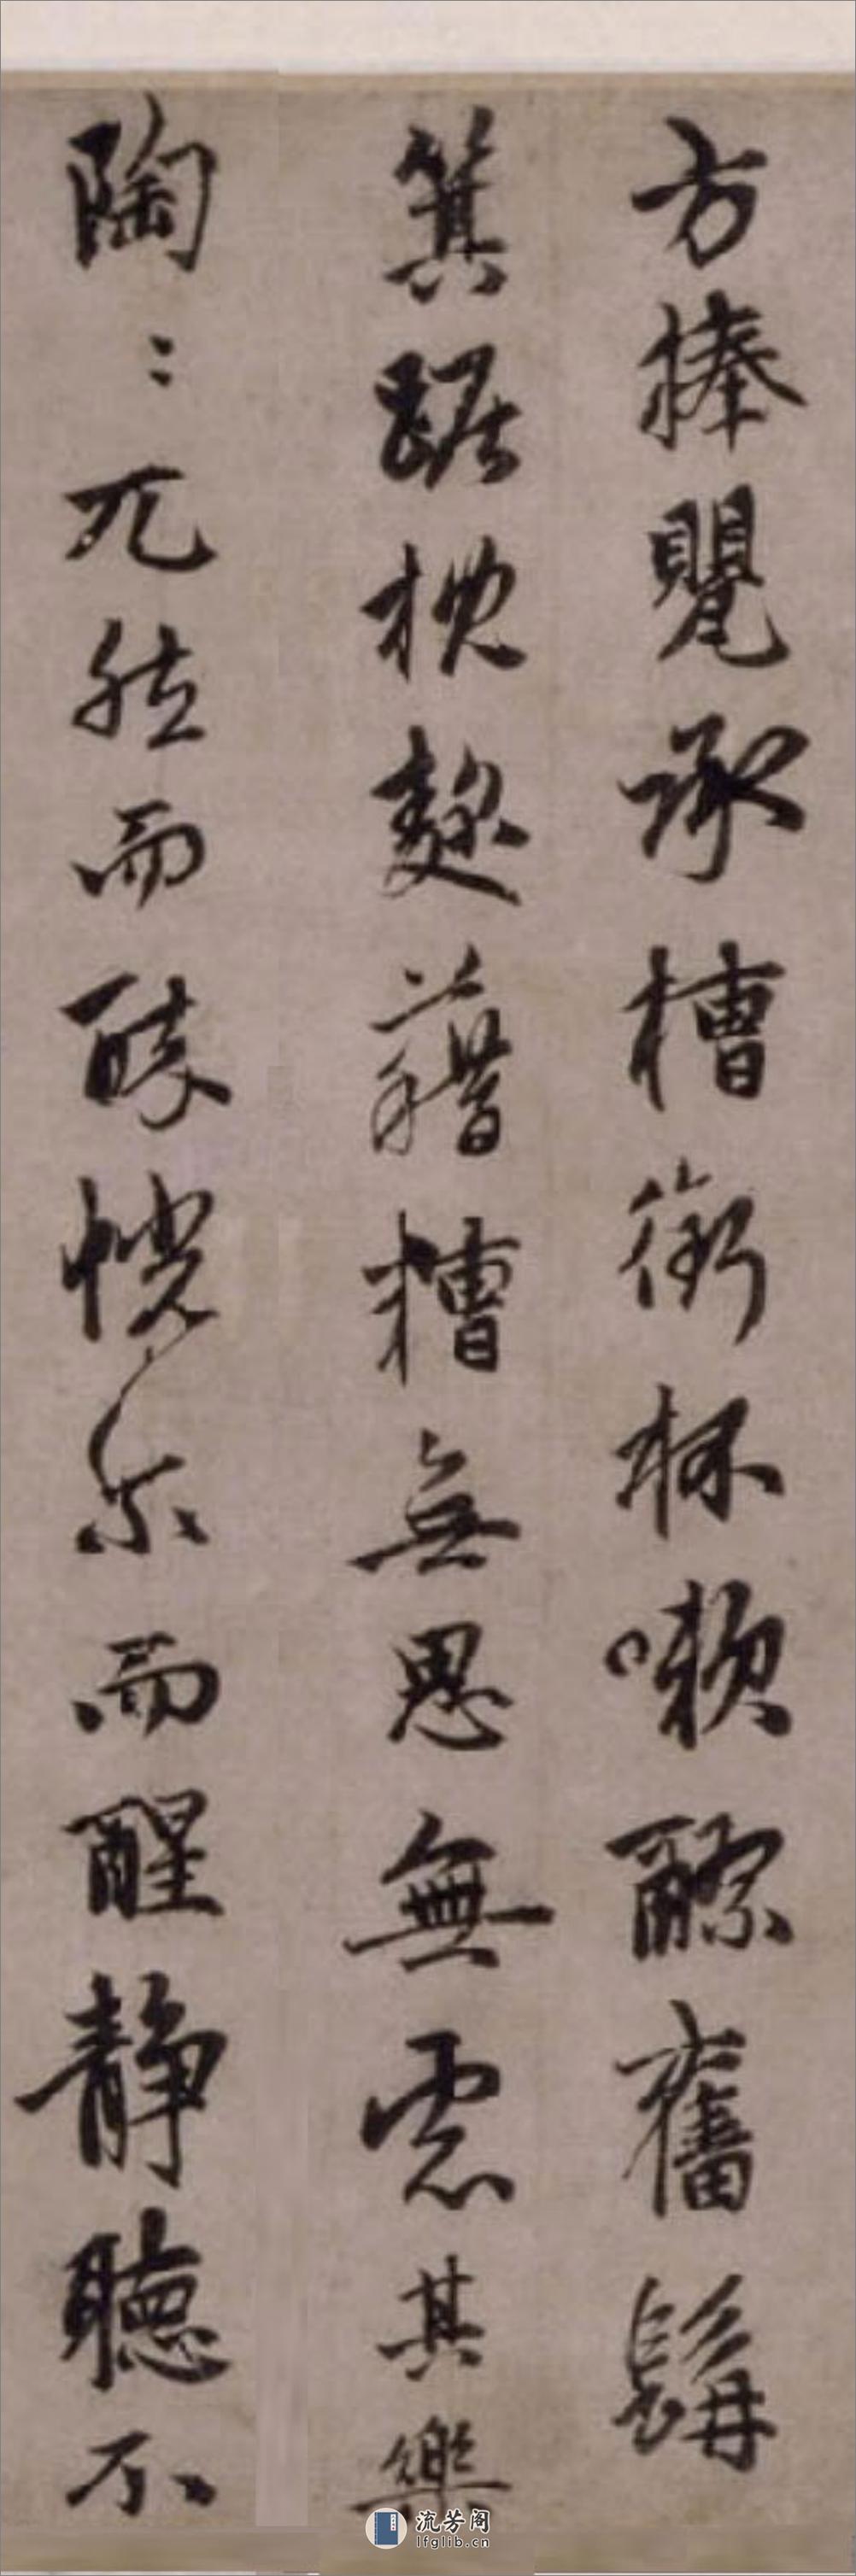 方捧甖承槽銜杯嗽醪奮髯
箕踞枕麴藉糟無思無慮其樂
陶〻兀然而醉恍尔而醒静聽不
流芳阁
lfglib.cn